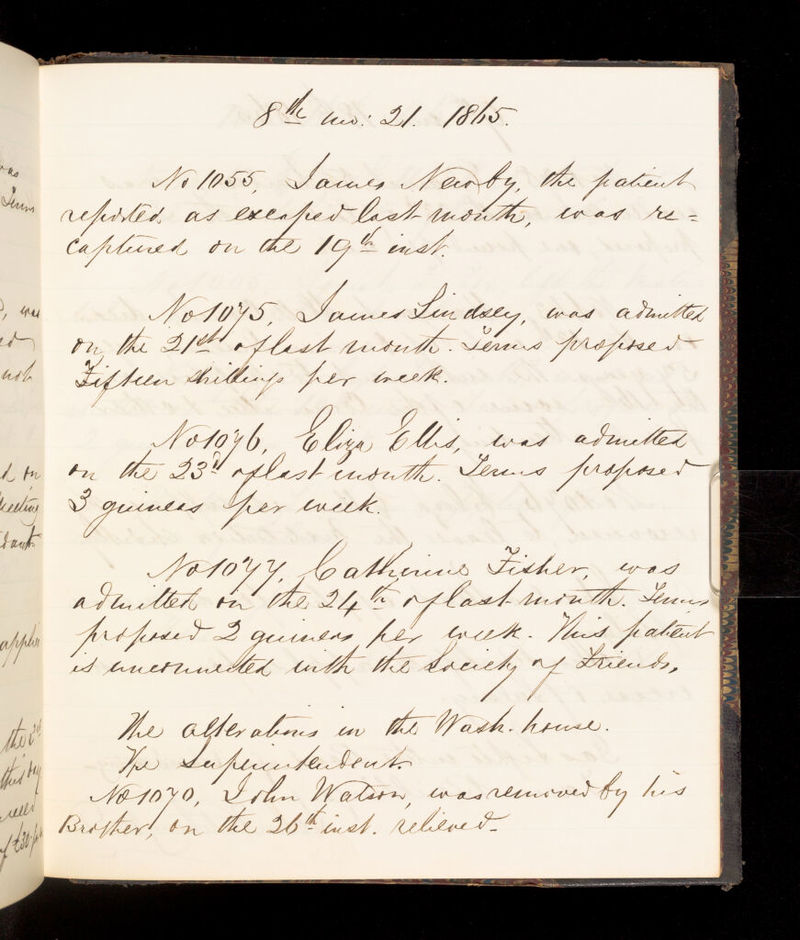 8th mo: 21. 1865.
No 1055, James Newby, the patient
reported as escaped last month, was re=
captured on the 19th inst.
No 1075, James Lindsey, was admitted
on the 21st of last month. Terms proposed
Fifteen shillings per week.
No 1076, Eliza Ellis, was admitted
on the 23d of last month. Terms proposed
3 guineas per week.
No 1077, Catherine Fisher, was
admitted on the 24th of last month. Terms
proposed 2 guineas per week. This patient
is unconnected with the Society of Friends.
The alterations in the Wash-house.
The Superintendent.
No 1070, John Watson, was removed by his
Brother, on the 26th inst. relieved.